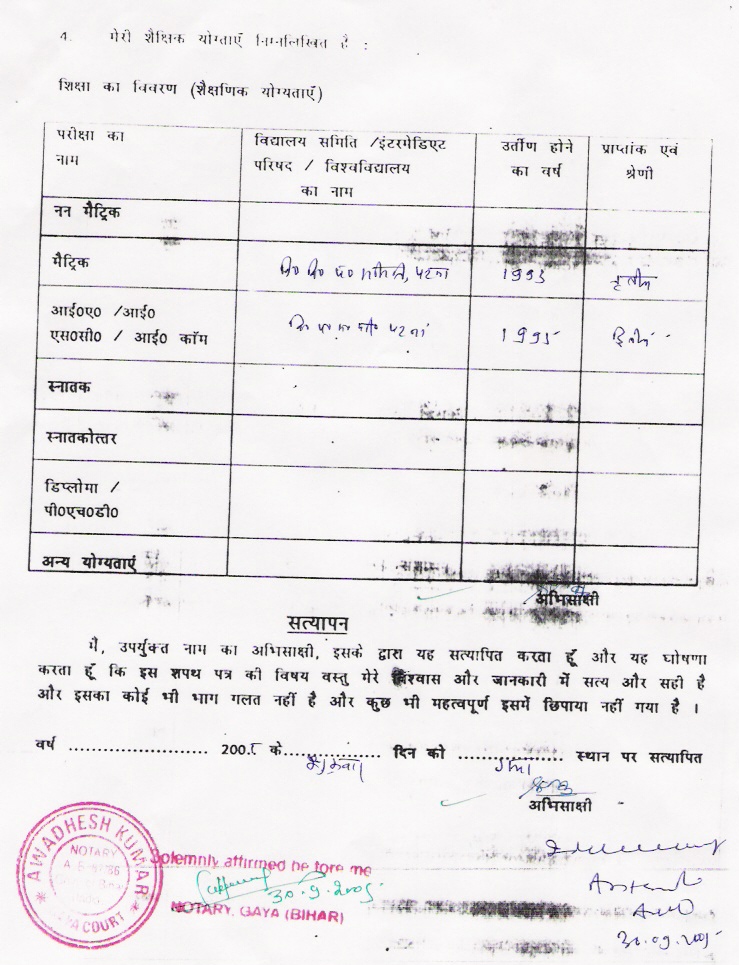 4. मेरी शैक्षिक योग्ताएँ निम्नलिखित है :
शिक्षा का विवरण (शैक्षणिक योग्यताएँ)
परीक्षा का
नाम
विद्यालय समिति /इंटरमेडिएट
परिषद / विश्वविद्यालय
का नाम
उर्तीण होने
का वर्ष
प्राप्तांक एवं
श्रेणी
नन मैट्रिक
मैट्रिक
पटना
1993
तृतीय
आई0ए0 /आई0
एस0सी0 / आई0 कॉम
पटना
1995
द्वितीय
स्नातक
स्नातकोत्तर
डिप्लोमा /
पी0एच0डी0
अन्य योग्यताएं
अभिसाक्षी
सत्यापन
मैं, उपर्युक्त नाम का अभिसाक्षी, इसके द्वारा यह सत्यापित करता हूँ और यह घोषणा
करता हूँ कि इस शपथ पत्र की विषय वस्तु मेरे विश्वास और जानकारी में सत्य और सही है
और इसका कोई भी भाग गलत नहीं है और कुछ भी महत्वपूर्ण इसमें छिपाया नहीं गया है ।
वर्ष ....................... 2005 के................ शुक्रवार दिन को .................. गया स्थान पर सत्यापित
अभिसाक्षी
AWADHESH KUMAR
NOTARY
GAYA COURT
Solemnly affirmed before me
30.9.2005
NOTARY, GAYA (BIHAR)
30.09.2005